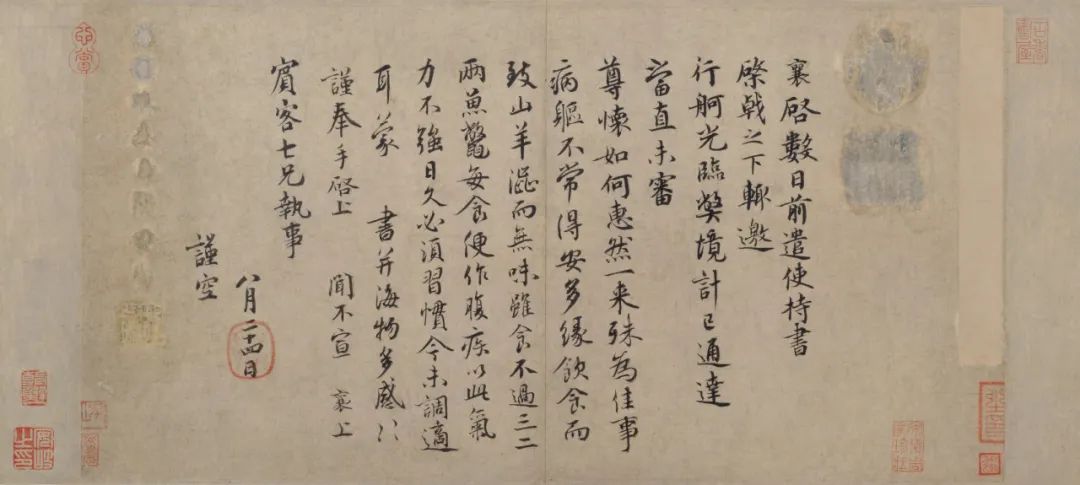 襄啓數日前遣使持書
棨戟之下輙邀
行舸光臨獘境計已通達
當直未審
尊懷如何惠然一来殊為佳事
病軀不常得安多緣飲食而
致山羊澁而無味雖食不過三二
兩魚鼈每食便作腹疾以此氣
力不強日久必須習慣今未調適
耳蒙 書并海物多感〻
謹奉手啓上 聞不宣 襄上
賔客七兄執事
八月二十四日
謹空